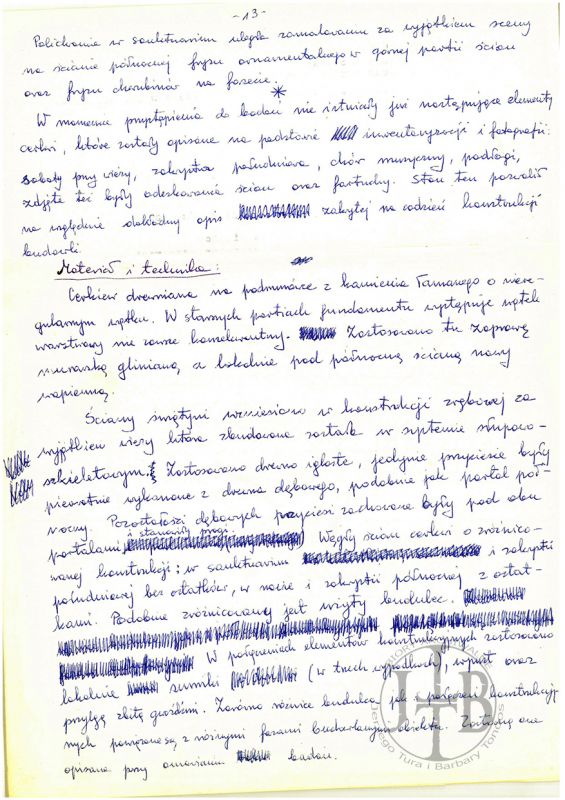 -13-
Polichromia w sanktuarium uległa zamalowaniu za wyjątkiem sceny
na ścianie północnej fryzu ornamentalnego w górnej partii ścian
oraz fryzu cherubinów na fasecie. *
W momencie przystąpienia do badań nie istniały już następujące elementy
cerkwi, które zostały opisane na podstawie inwentaryzacji i fotografii:
soboty przy wieży, zakrystia południowa, chór muzyczny, podłogi,
zdjęte też były odeskowania ścian oraz fartuchy. Stan ten pozwolił
na względnie dokładny opis zakrytej na codzień konstrukcji
budowli.
Materiał i technika:
Cerkiew drewniana na podmurówce z kamienia łamanego o niere-
gularnym wątku. W starszych partiach fundamentu występuje wątek
warstwowy nie zawsze konsekwentny. Zastosowano tu zaprawę
murarską glinianą, a lokalnie pod północną ścianą nawy
wapienną.
Ściany świątyni wzniesiono w konstrukcji zrębowej za
wyjątkiem wieży która zbudowana została w systemie słupowo-
szkieletowym. Zastosowano drewno iglaste, jedynie przyciesie były
pierwotnie wykonane z drewna dębowego, podobnie jak portal pół-
nocny. Pozostałości dębowych przyciesi zachowane były pod obu
portalami i stanowiły progi. Węgły ścian cerkwi o zróżnico-
wanej konstrukcji; w sanktuarium i zakrystii
południowej bez ostatków, w nawie i zakrystii północnej z ostat-
kami. Podobnie zróżnicowany jest użyty budulec.
W połączeniach elementów konstrukcyjnych zastosowano
lokalnie zamki (w trzech wypadkach), wpust oraz
przylgę zbitą gwoźdźmi. Zarówno różnice budulca jak i połączeń konstrukcyj-
nych powiązane są z różnymi fazami budowlanymi obiektu. Zostaną one
opisane przy omawianiu badań.
JTB
Jerzego Tura i Barbary Tondos